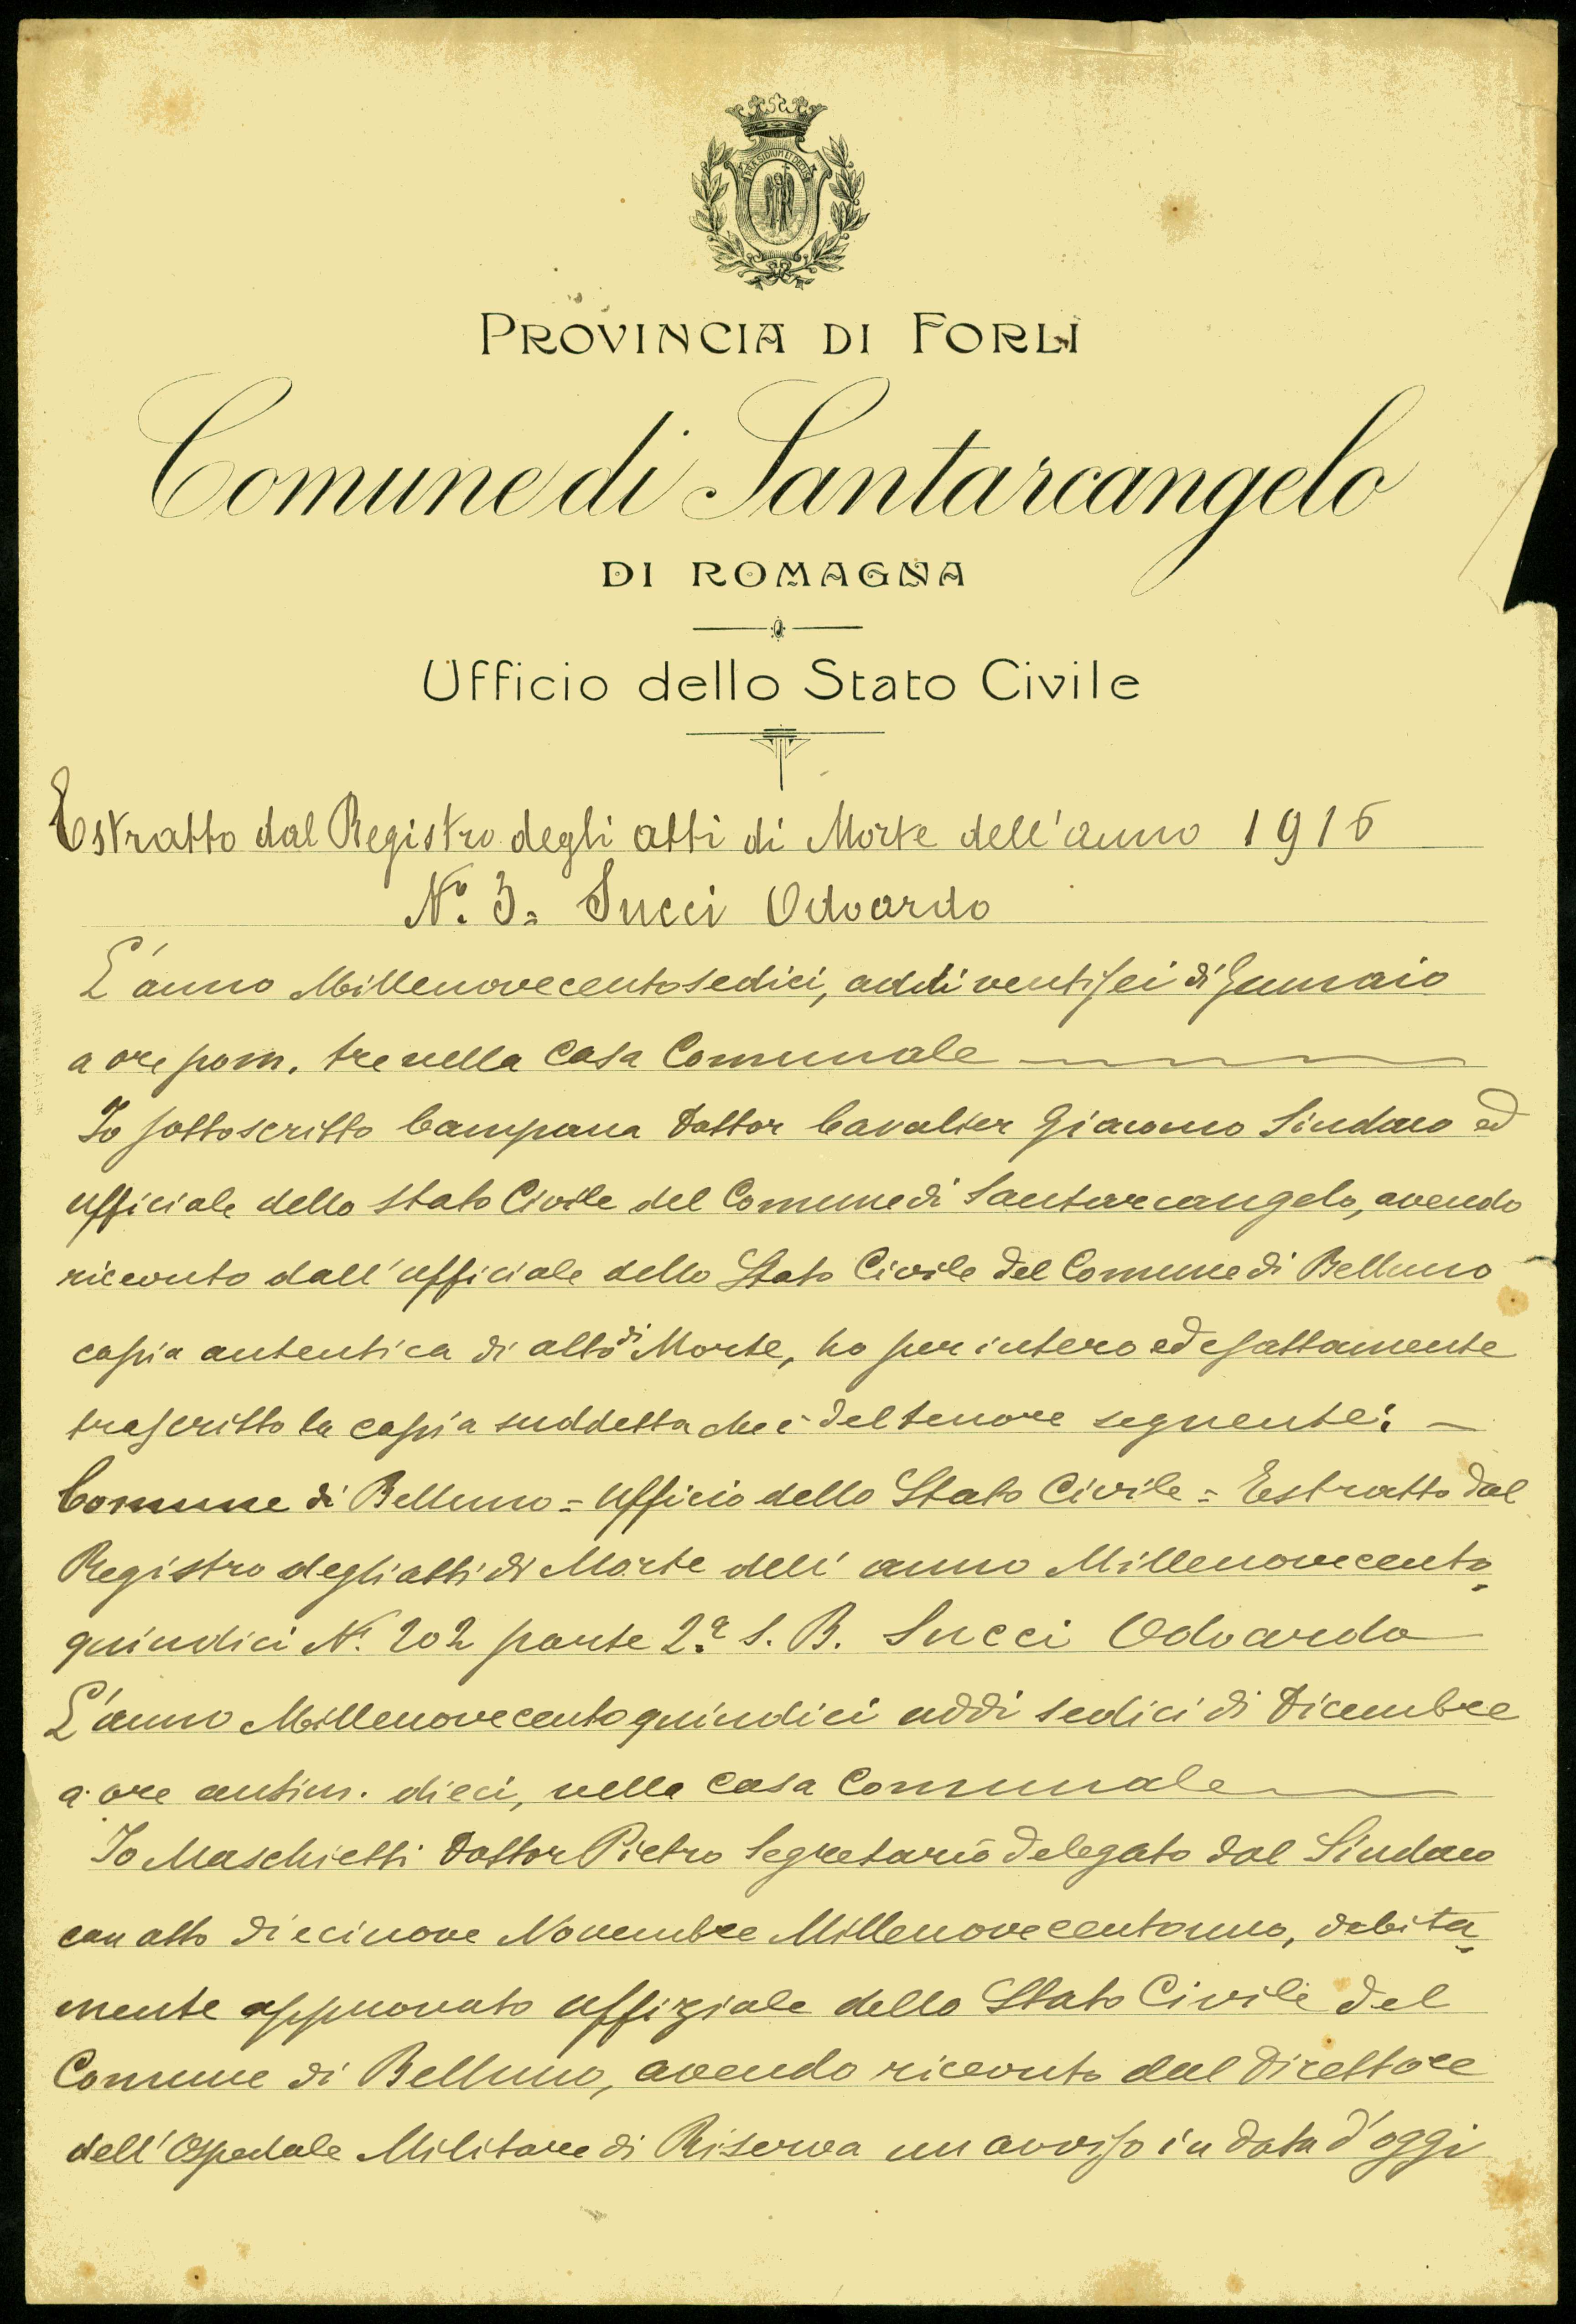 PRÆSIDIUM ET DECUS
PROVINCIA DI FORLI
Comune di Santarcangelo
DI ROMAGNA
Ufficio dello Stato Civile
Estratto dal Registro degli atti di Morte dell'anno 1916
N.º 3 = Succi Odoardo
L'anno Millenovecentosedici, addi ventisei di Gennaio
a ore pom. tre nella Casa Comunale
Io sottoscritto Campana Dottor Cavalier Giacomo Sindaco ed
Ufficiale dello Stato Civile del Comune di Santarcangelo, avendo
ricevuto dall'Ufficiale dello Stato Civile del Comune di Belluno
copia autentica di atto di Morte, ho per intero ed esattamente
trascritto la copia suddetta che è del tenore seguente: —
Comune di Belluno = Ufficio dello Stato Civile = Estratto dal
Registro degli atti di Morte dell'anno Millenovecento=
quindici N. 202 parte 2ª S. B. Succi Odoardo
L'anno Millenovecentoquindici addi sedici di Dicembre
a ore antim. dieci, nella Casa Comunale
Io Maschietti Dottor Pietro Segretario delegato dal Sindaco
con atto diecinove Novembre Millenovecentouno, debita=
mente approvato uffiziale dello Stato Civile del
Comune di Belluno, avendo ricevuto dal Direttore
dell'Ospedale Militare di Riserva un avviso in data d'oggi